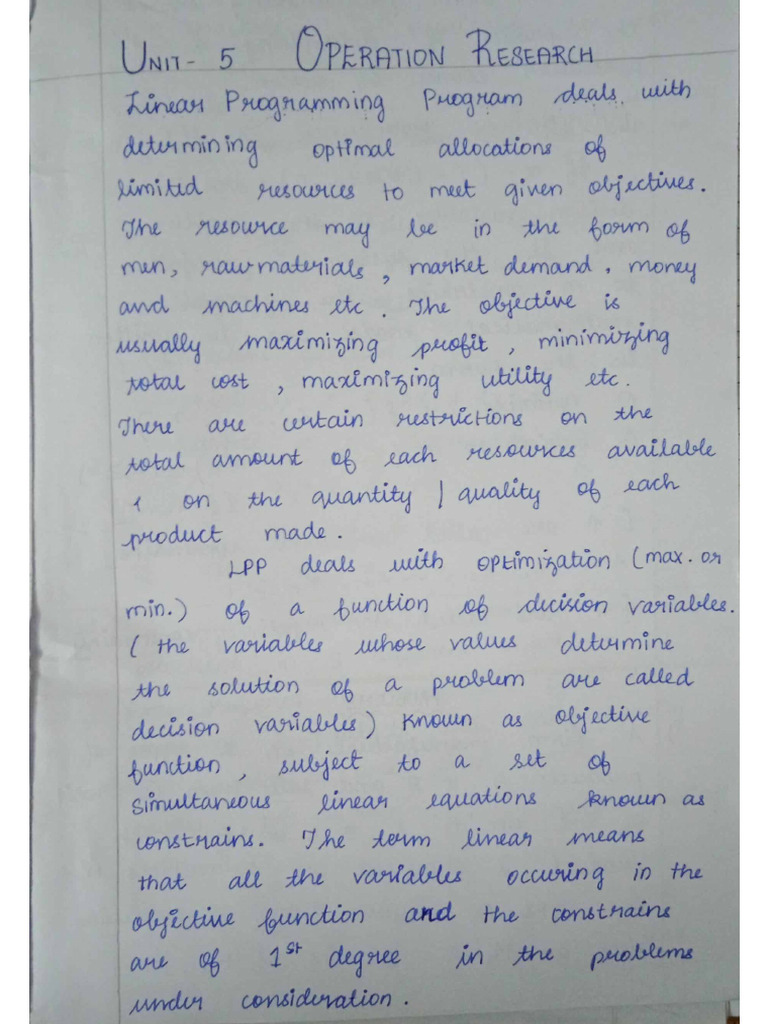 UNIT- 5 OPERATION RESEARCH
Linear Programming Program deals with
determining optimal allocations of
limited resources to meet given objectives.
The resource may be in the form of
men, raw materials, market demand, money
and machines etc. The objective is
usually maximizing profit, minimizing
total cost, maximizing utility etc.
There are certain restrictions on the
total amount of each resources available
& on the quantity / quality of each
product made.
LPP deals with optimization (max. or
min.) of a function of decision variables.
(the variables whose values determine
the solution of a problem are called
decision variables) known as objective
function, subject to a set of
simultaneous linear equations known as
constrains. The term linear means
that all the variables occuring in the
objective function and the constrains
are of 1st degree in the problems
under consideration.